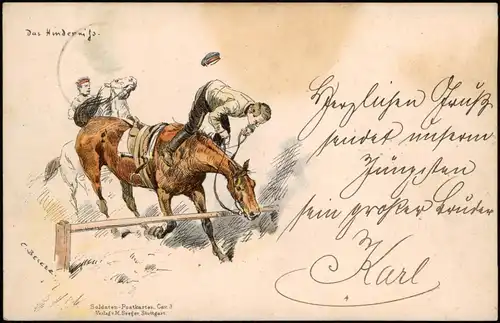 Das Hinderniss.
Herzlichen Gruß
sendet unserm
Jüngsten
sein großer Bruder
Karl
C. Becker
Soldaten-Postkarten. Cav. 3
Verlag v. M. Seeger, Stuttgart.